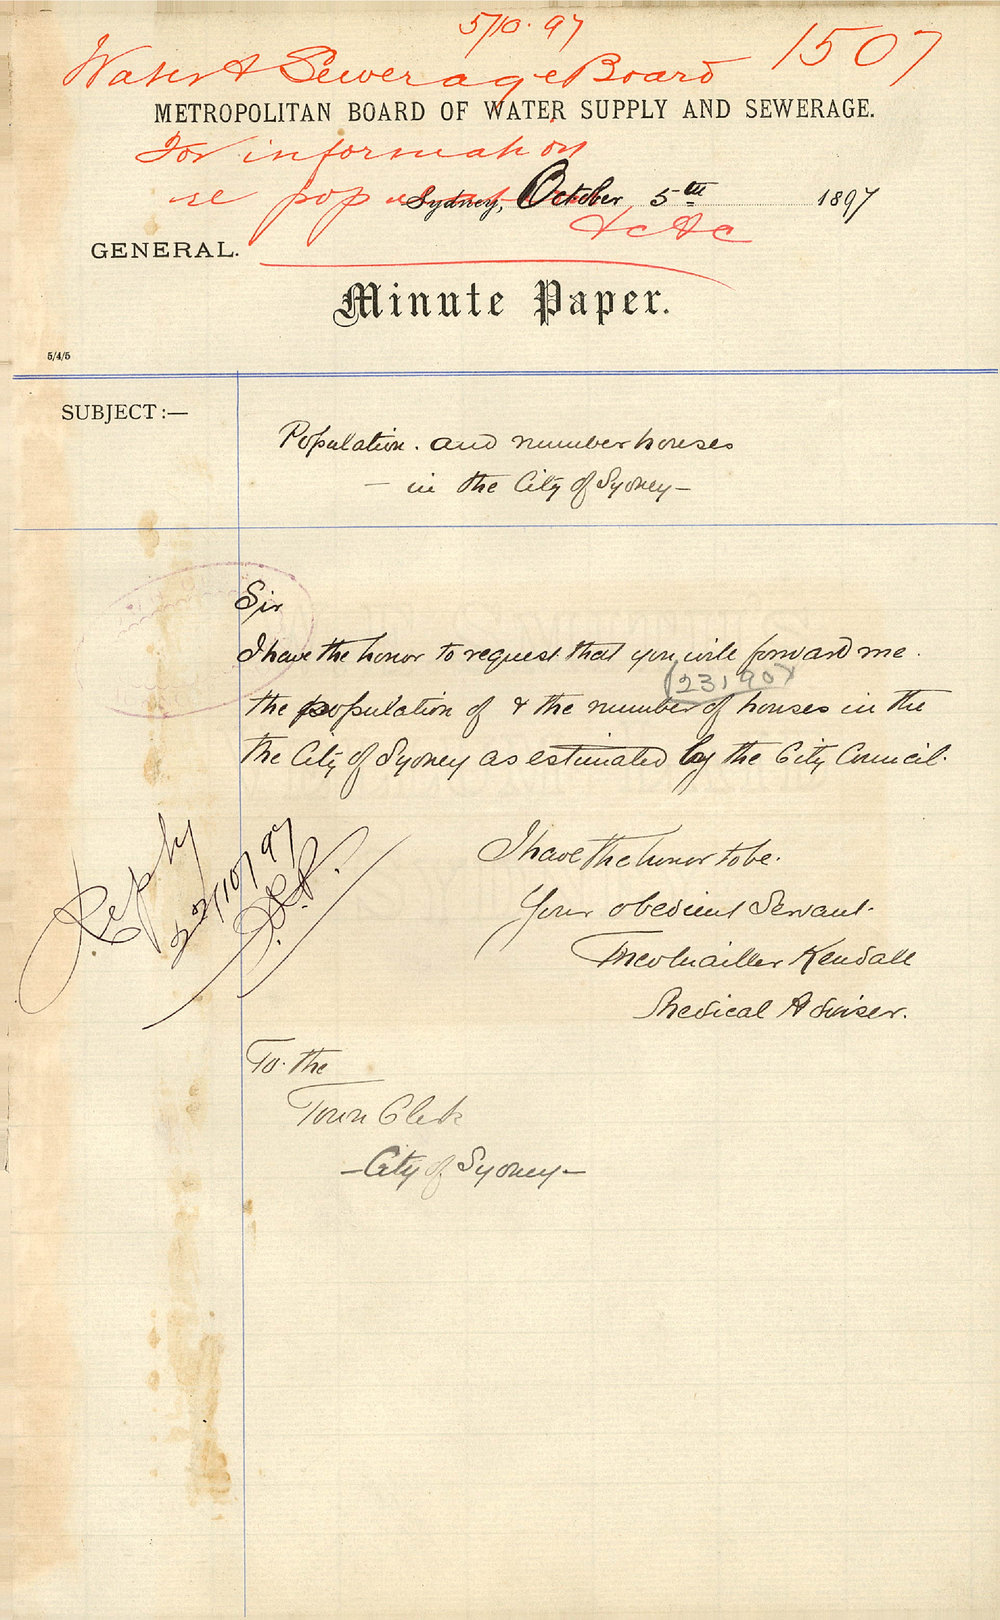 5/10.97
Water & Sewerage Board 1507
METROPOLITAN BOARD OF WATER SUPPLY AND SEWERAGE.
For information
re population
Sydney, October 5th 1897
&c &c
GENERAL.
Minute Paper.
5/4/5
SUBJECT:—
Population. and number houses
— in the City of Sydney —
Sir
I have the honor to request that you will forward me.
(23,1907
the population of & the number of houses in the
the City of Sydney as estimated by the City Council.
Reply
22/10/97
I have the honor to be.
Your obedient Servant.
Kendall
Medical Adviser.
To. the
Town Clerk
— City of Sydney —